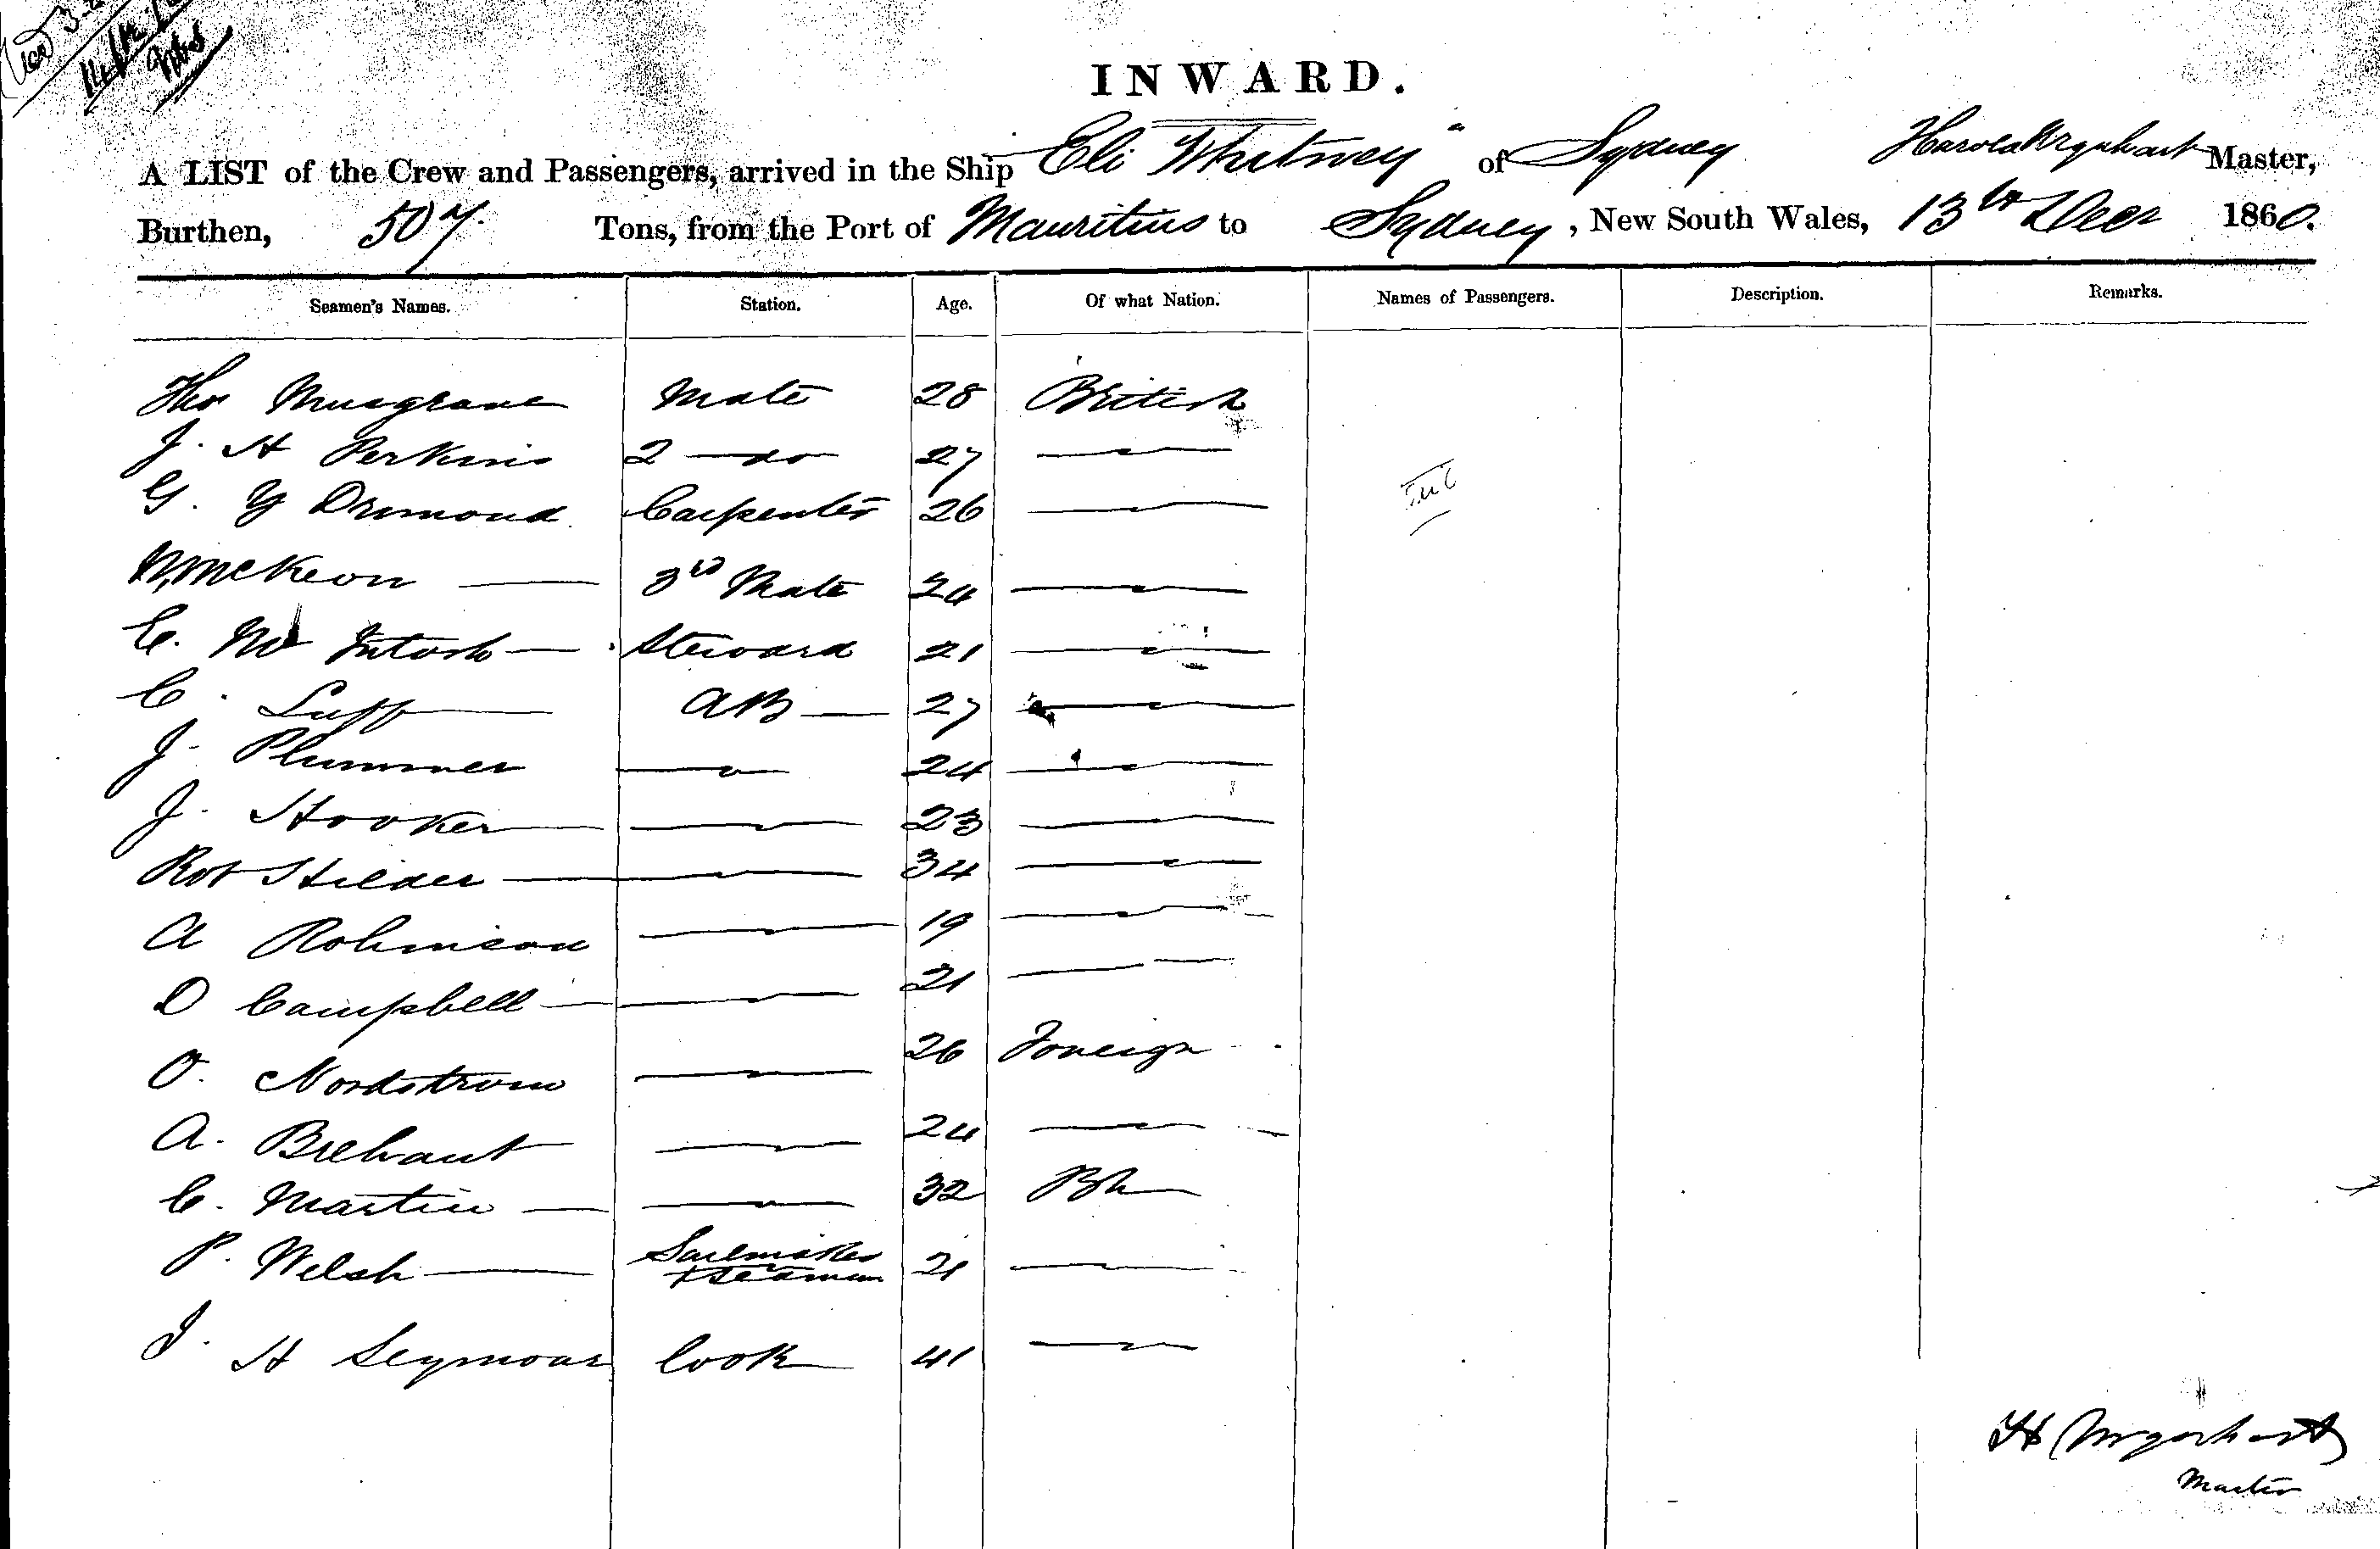 INWARD.
A LIST of the Crew and Passengers, arrived in the Ship Eli Whitney" of Sydney Harold Urquhart Master,
Burthen, 507. Tons, from the Port of Mauritius to Sydney, New South Wales, 13th Decr 1860.
Seamen's Names. Station. Age. Of what Nation. Names of Passengers. Description. Remarks.
Thos Musgrave Mate 28 British
J. H Perkins 2 — do 27 —
G. Y Drumond Carpenter 26 —
McKeon — 3rd Mate 24 —
C. Mc Intosh — Steward 21 —
C. Luff — AB — 27 —
J. Plummer — 24 —
J. Hooker — 23 —
Rob Hilder — 34 —
A Robinson — 19 —
D Campbell — 21 —
O. Nordstrom — 26 Foreign
A. Brehaut — 24 —
C. Martin — 32 Bh
P. Welsh — Sailmaker + Seaman 21 —
J. H Seymour Cook 41 —
H Urquhart
Master